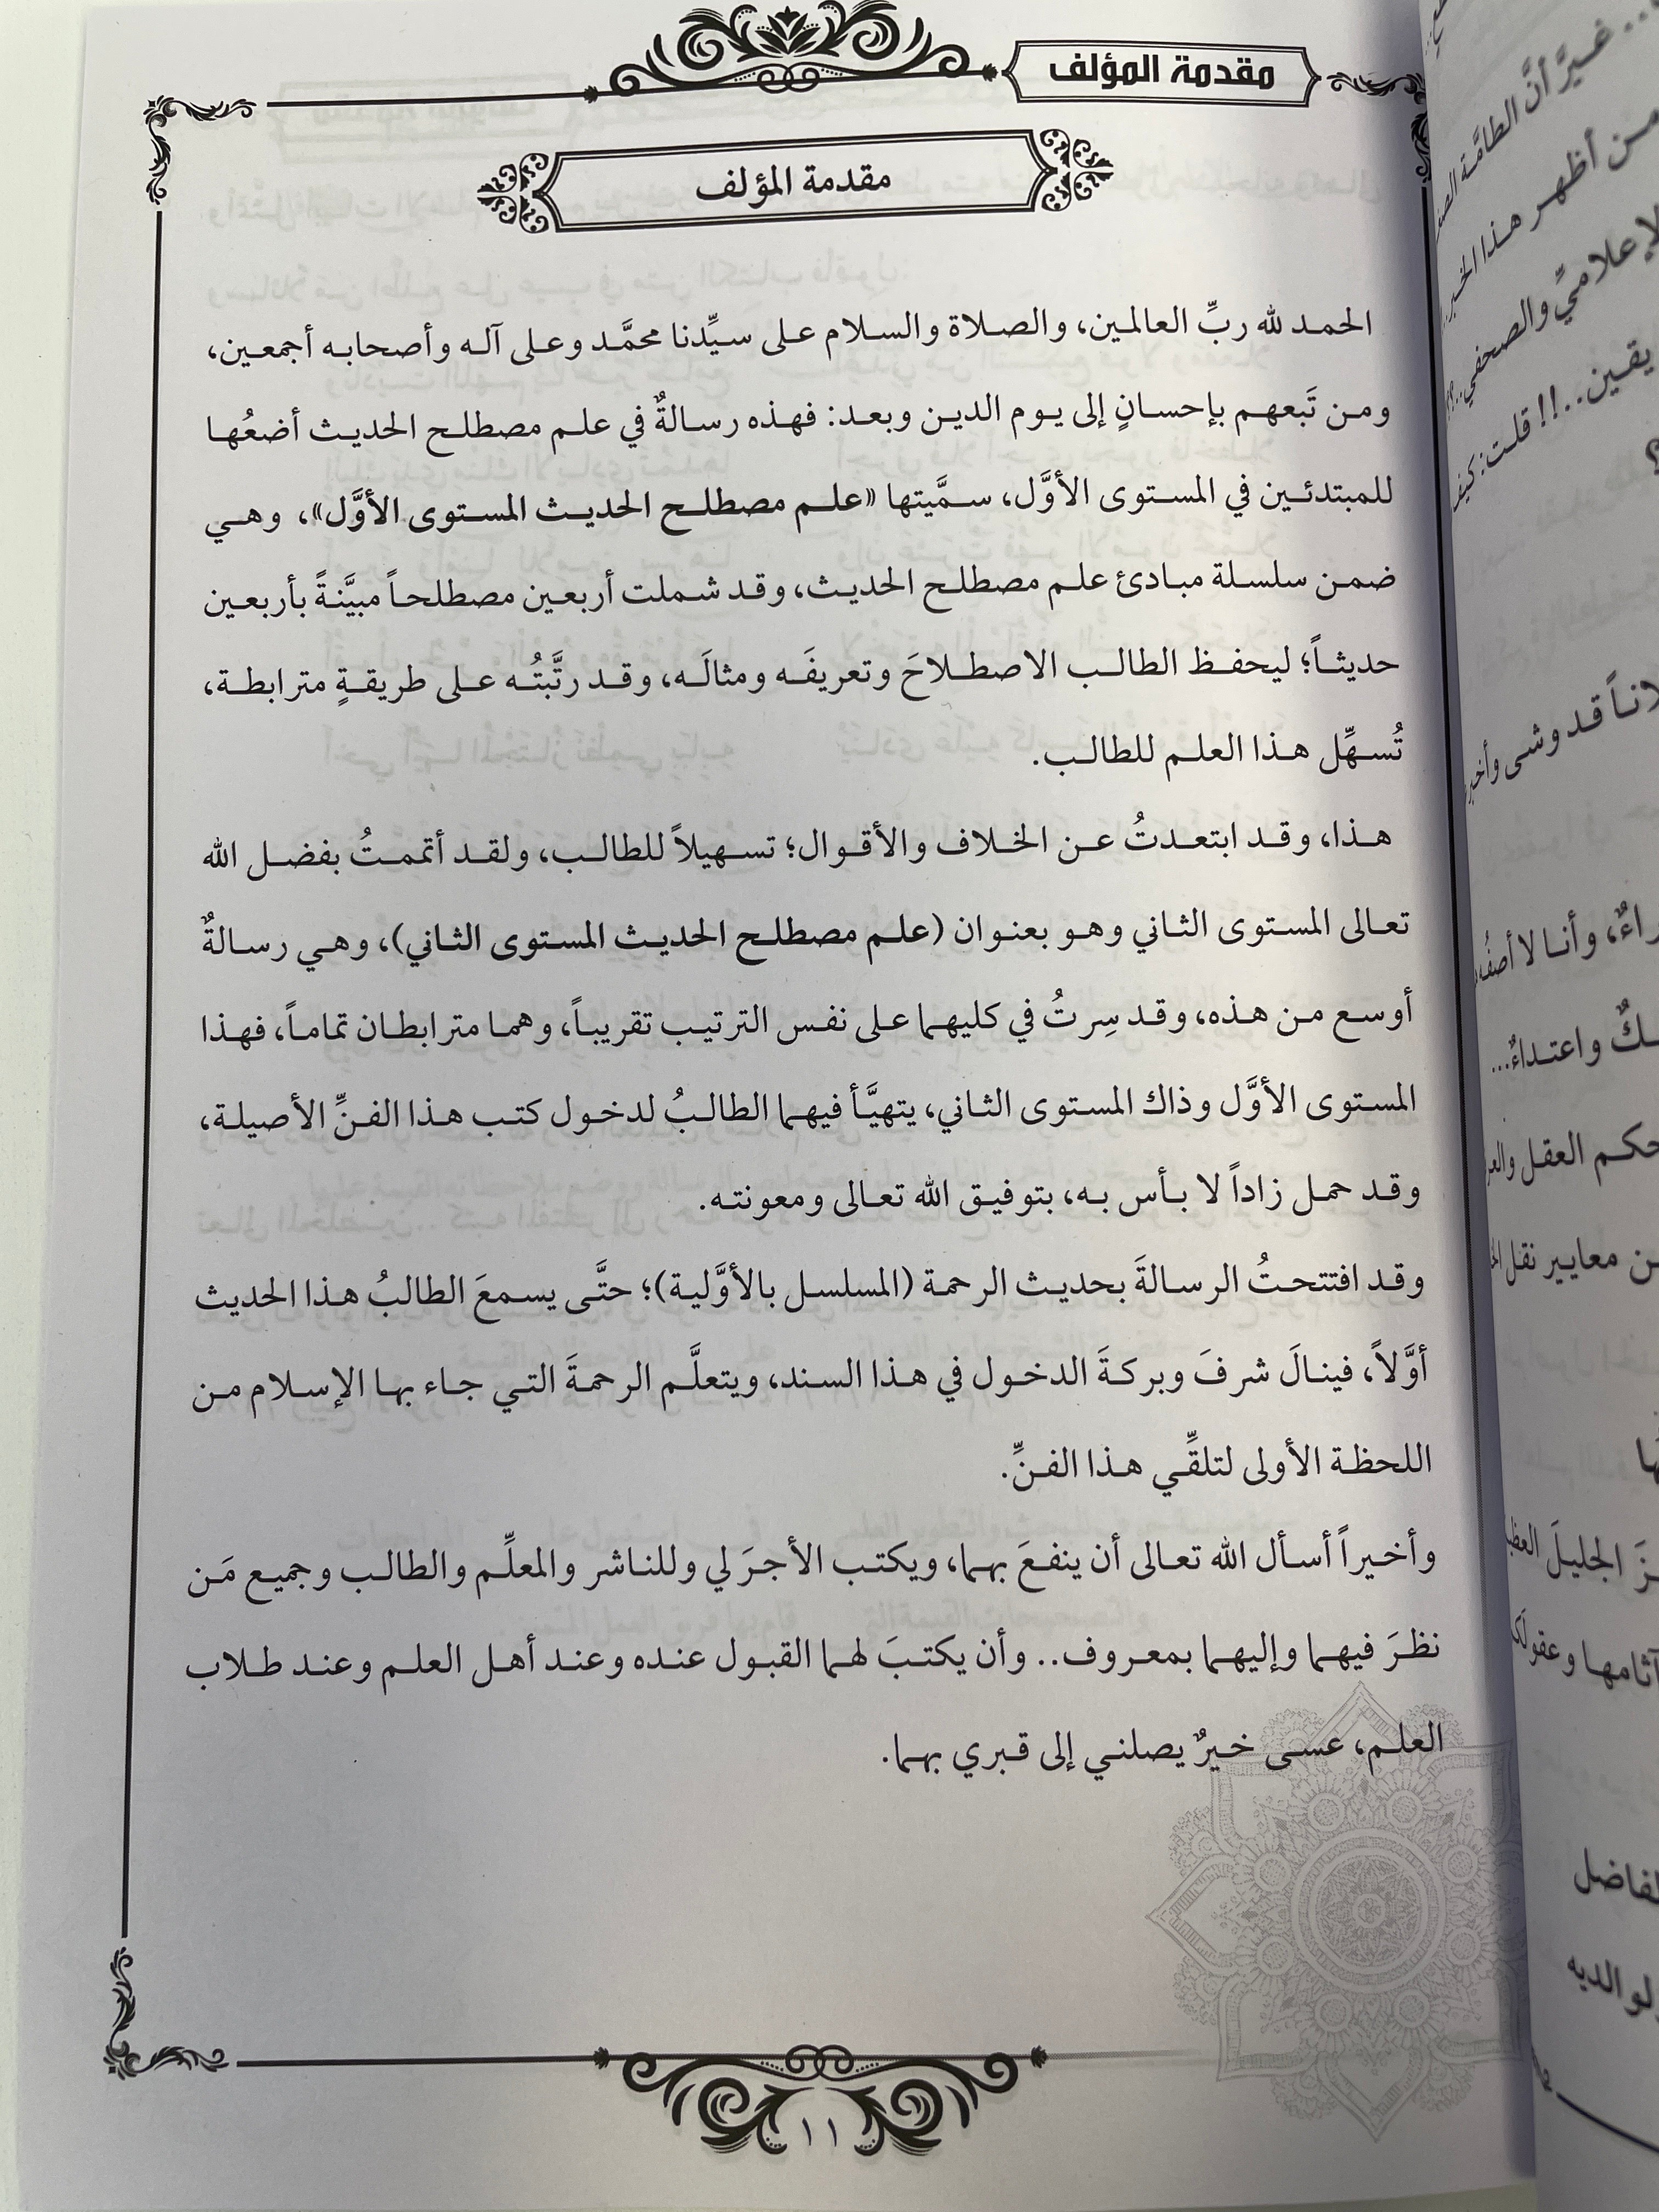 مقدمة المؤلف
مقدمة المؤلف
الحمد لله ربِّ العالمين، والصلاة والسلام على سيِّدنا محمَّد وعلى آله وأصحابه أجمعين،
ومن تَبعهم بإحسانٍ إلى يوم الدين وبعد: فهذه رسالةٌ في علم مصطلح الحديث أضعُها
للمبتدئين في المستوى الأوَّل، سمَّيتها «علم مصطلح الحديث المستوى الأوَّل»، وهي
ضمن سلسلة مبادئ علم مصطلح الحديث، وقد شملت أربعين مصطلحاً مبيَّنةً بأربعين
حديثاً؛ ليحفظ الطالب الاصطلاحَ وتعريفَه ومثالَه، وقد رتَّبتُه على طريقةٍ مترابطة،
تُسهِّل هذا العلم للطالب.
هذا، وقد ابتعدتُ عن الخلاف والأقوال؛ تسهيلاً للطالب، ولقد أتممتُ بفضل الله
تعالى المستوى الثاني وهو بعنوان (علم مصطلح الحديث المستوى الثاني)، وهي رسالةٌ
أوسع من هذه، وقد سِرتُ في كليهما على نفس الترتيب تقريباً، وهما مترابطان تماماً، فهذا
المستوى الأوَّل وذاك المستوى الثاني، يتهيَّأ فيهما الطالبُ لدخول كتب هذا الفنِّ الأصيلة،
وقد حمل زاداً لا بأس به، بتوفيق الله تعالى ومعونته.
وقد افتتحتُ الرسالةَ بحديث الرحمة (المسلسل بالأوَّلية)؛ حتَّى يسمعَ الطالبُ هذا الحديث
أوَّلاً، فينالَ شرفَ وبركةَ الدخول في هذا السند، ويتعلَّم الرحمةَ التي جاء بها الإسلام من
اللحظة الأولى لتلقِّي هذا الفنِّ.
وأخيراً أسأل الله تعالى أن ينفعَ بهما، ويكتب الأجرَ لي وللناشر والمعلِّم والطالب وجميع مَن
نظرَ فيهما وإليهما بمعروف.. وأن يكتبَ لهما القبول عنده وعند أهل العلم وعند طلاب
العلم، عسى خيرٌ يصلني إلى قبري بهما.
١١
غيرَ أنَّ الطامَّة
من أظهر هذا الخبر
والصحفي
يقين..!! قلت:
قد وشى
وأنا لا
واعتداءٌ...
العقل
معايير نقل
الجليلَ